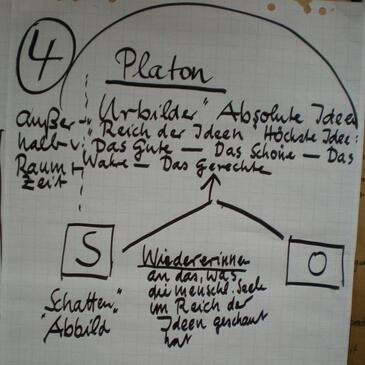 4
Platon
"Urbilder" Absolute Ideen
"Reich der Ideen Höchste Idee:
Das Gute — Das Schöne — Das
Wahre — Das Gerechte
außer-
halb v.
Raum +
Zeit
S
"Schatten"
Abbild
Wiedererinnern
an das, was
die menschl. Seele
im Reich der
Ideen geschaut
hat
O